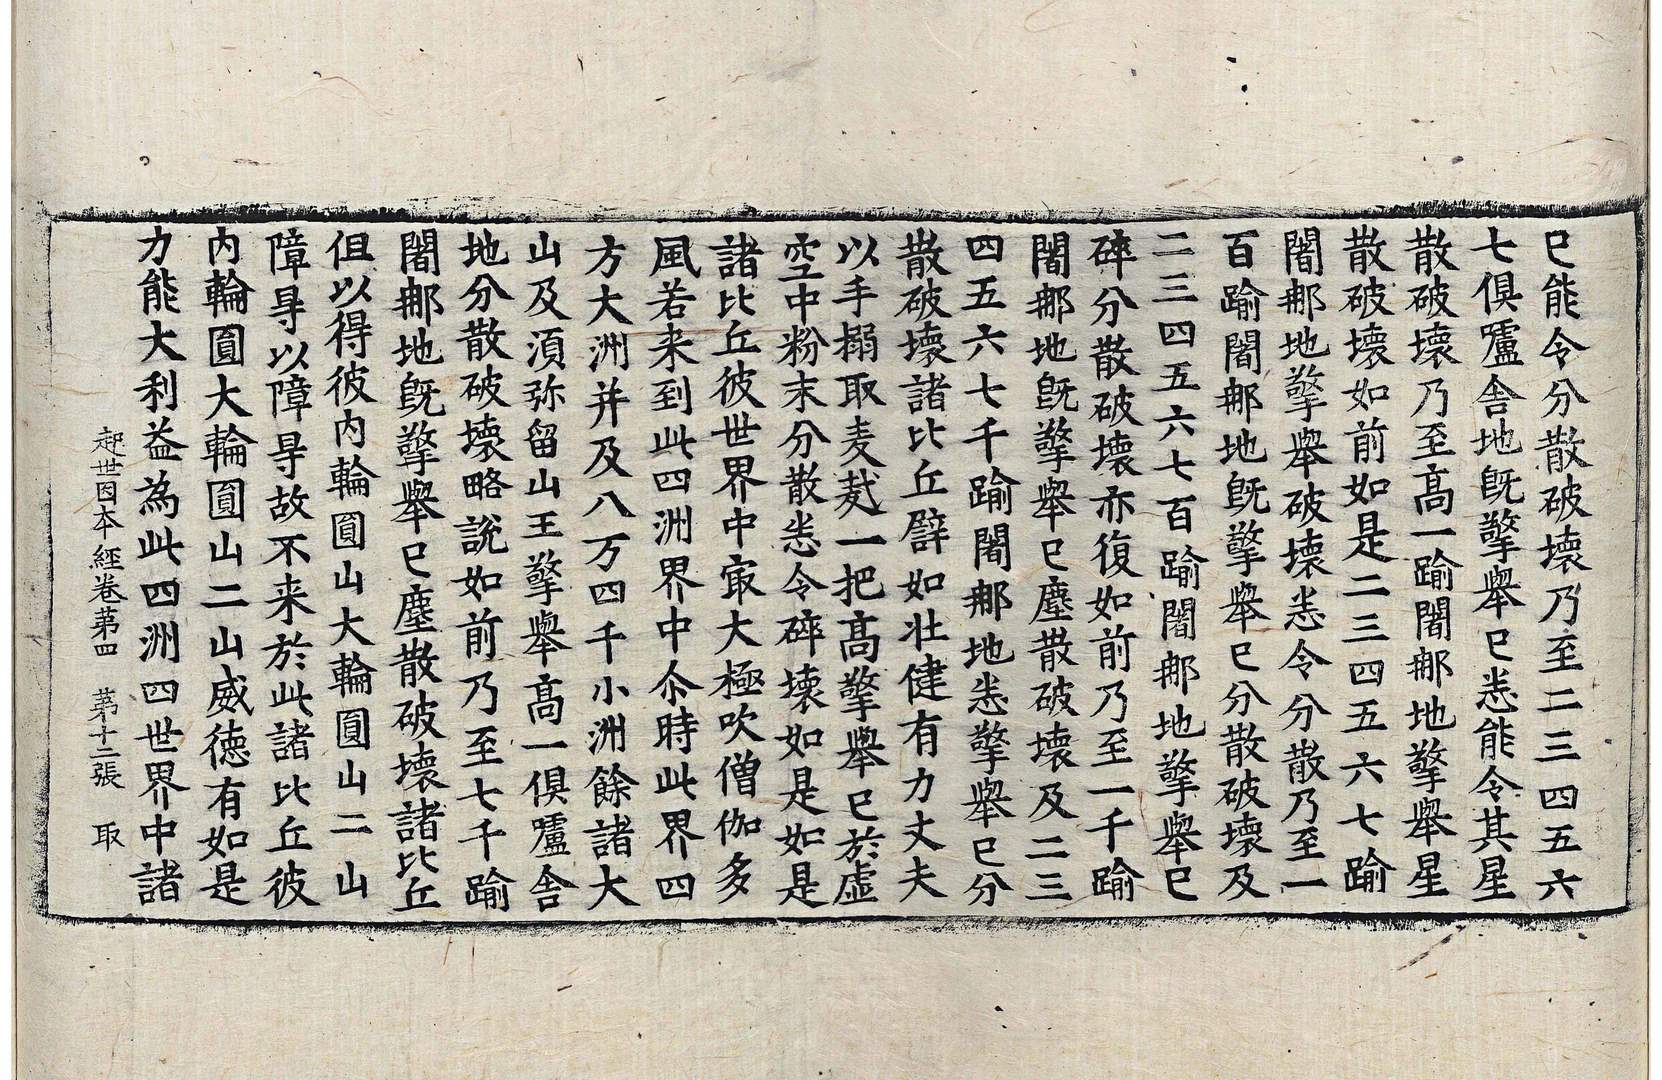 已能令分散破壞乃至二三四五六
七俱嚧舍地旣擎舉已悉能令其星
散破壞乃至高一踰闍郍地擎舉星
散破壞如前如是二三四五六七踰
闍郍地擎舉破壞悉令分散乃至一
百踰闍郍地旣擎舉已分散破壞及
二三四五六七百踰闍郍地擎舉已
碎分散破壞亦復如前乃至一千踰
闍郍地旣擎舉已塵散破壞及二三
四五六七千踰闍郍地悉擎舉已分
散破壞諸比丘譬如壯健有力丈夫
以手搦取麦𪌉一把高擎舉已於虛
空中粉末分散悉令碎壞如是如是
諸比丘彼世界中㝡大極吹僧伽多
風若来到此四洲界中尒時此界四
方大洲并及八万四千小洲餘諸大
山及湏弥留山王擎舉高一俱嚧舍
地分散破壞略說如前乃至七千踰
闍郍地旣擎舉已塵散破壞諸比丘
但以得彼内輪圓山大輪圓山二山
障㝵以障㝵故不来於此諸比丘彼
内輪圓大輪圓山二山威德有如是
力能大利益為此四洲四世界中諸
起世因本經卷第四　第十二張　取